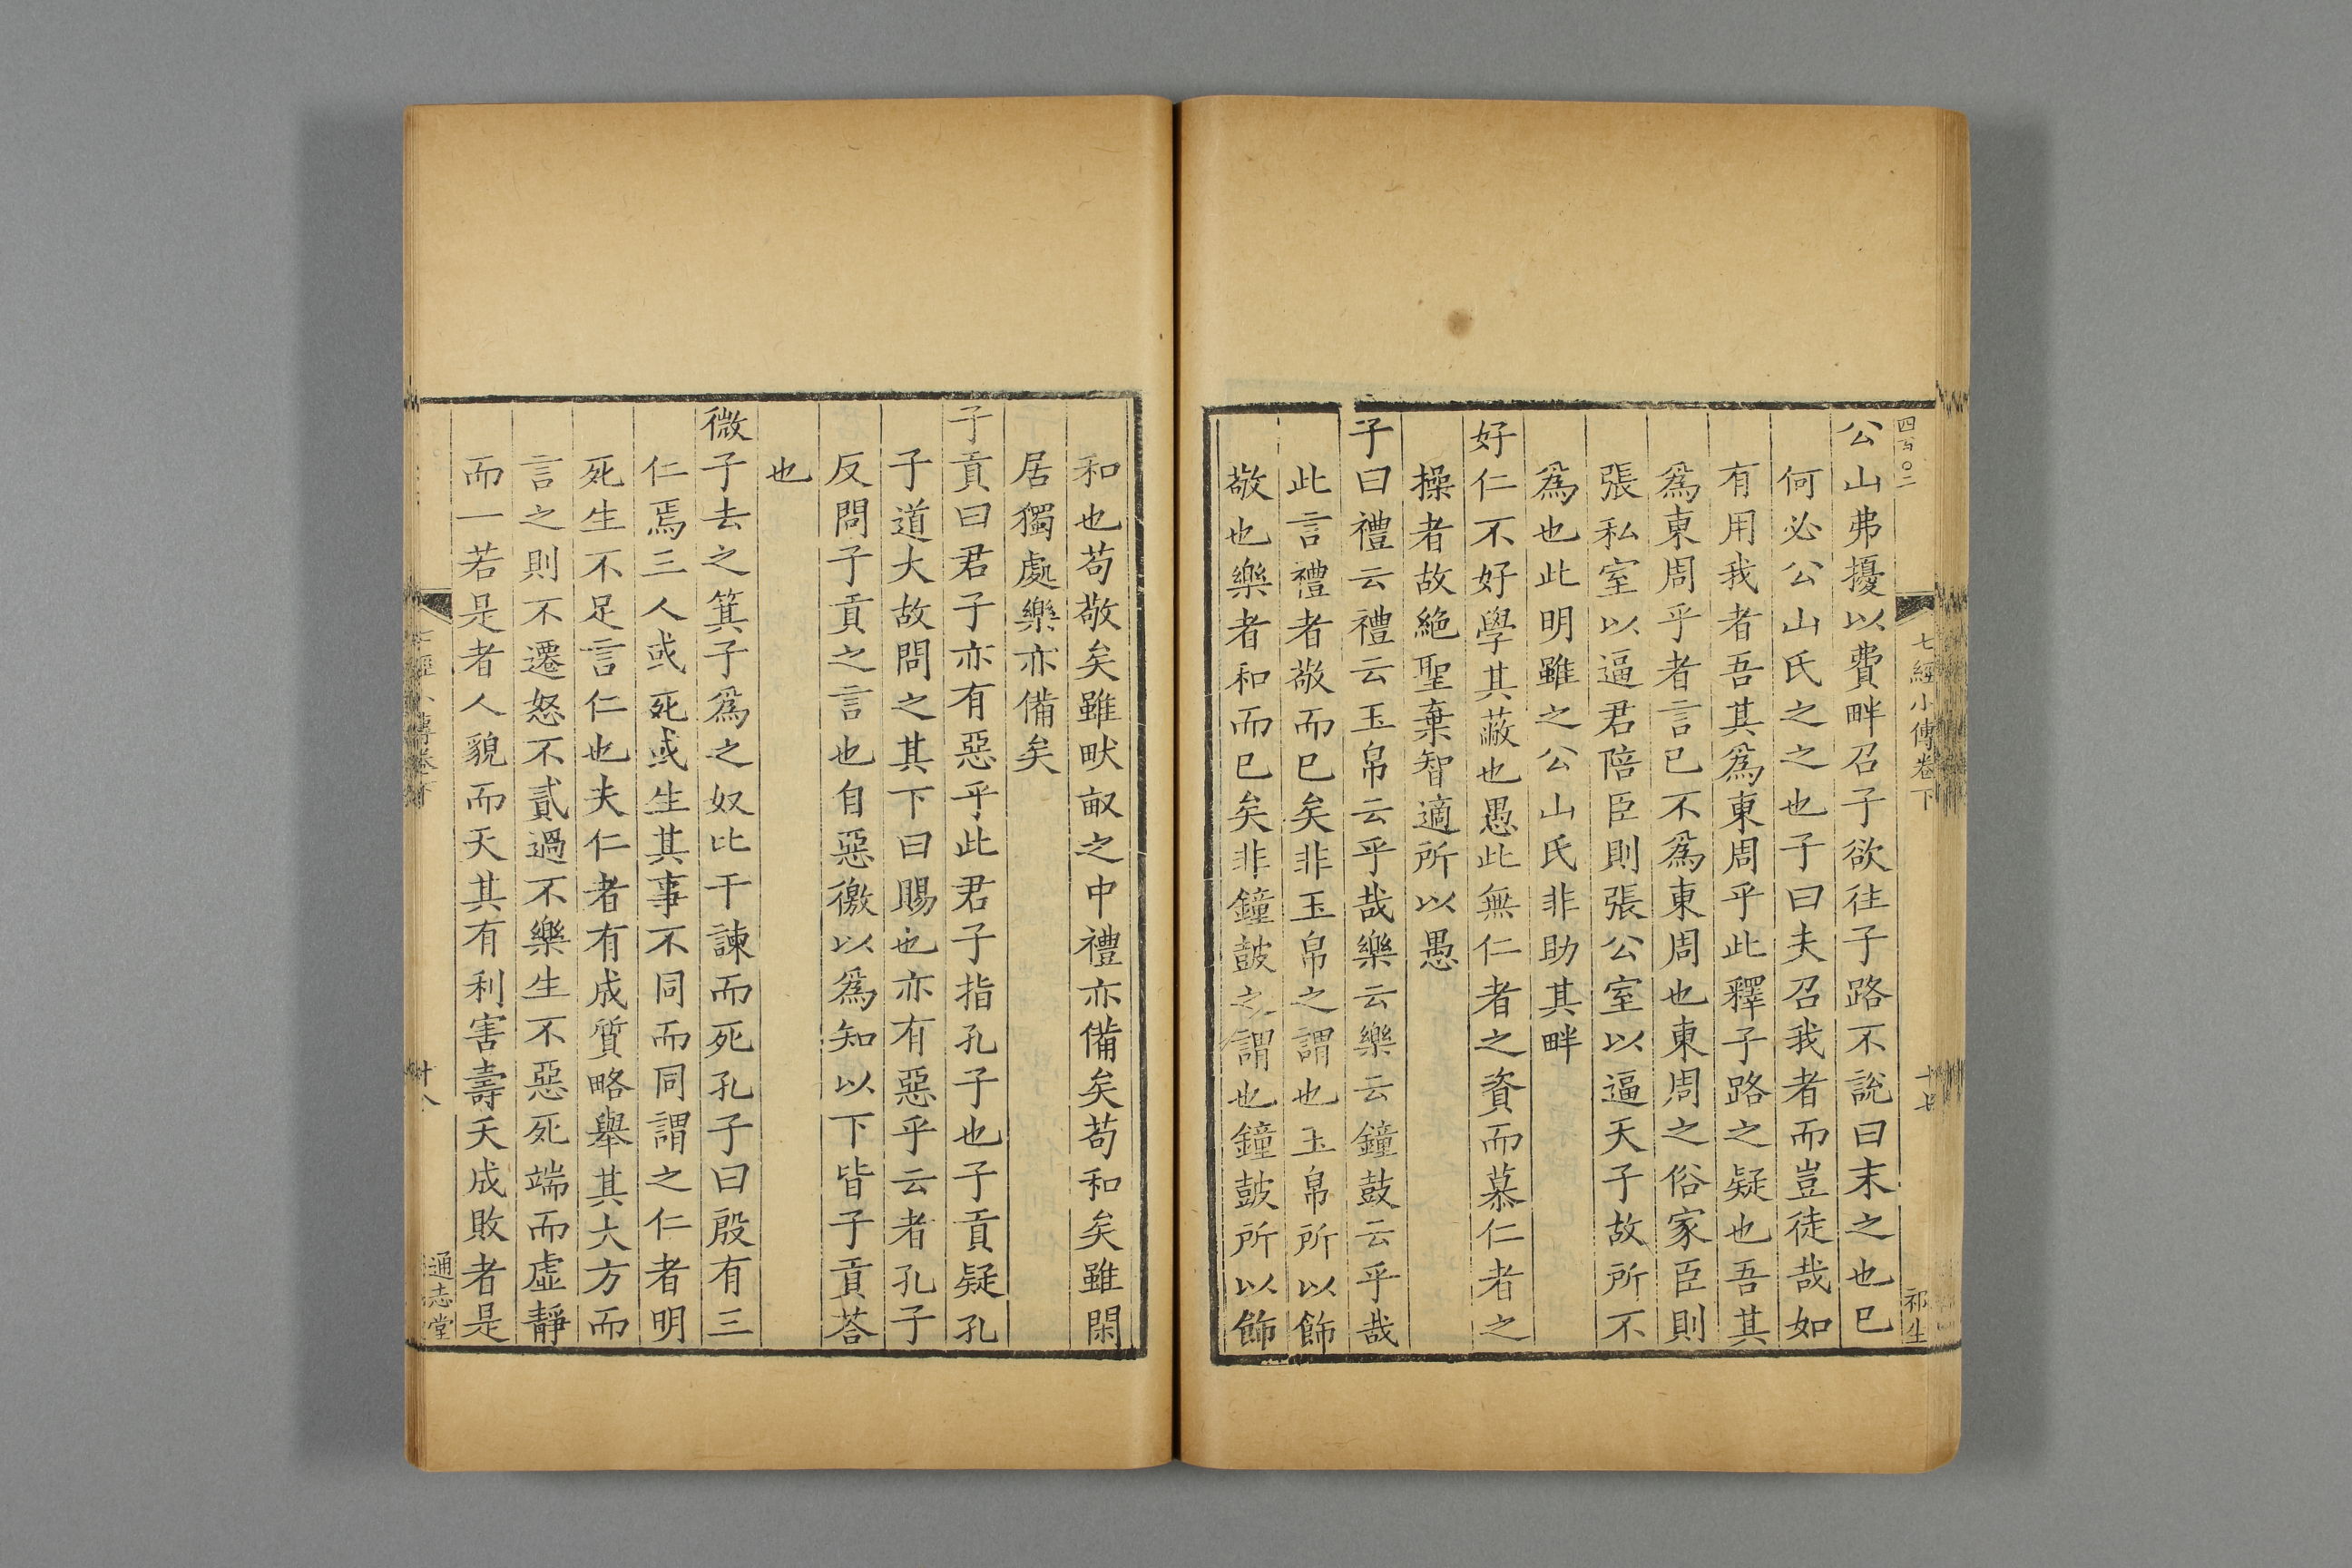 四百〇二
七經小傳卷下
十七
祁生
公山弗擾以費畔召子欲往子路不說曰末之也已
何必公山氏之之也子曰夫召我者而豈徒哉如
有用我者吾其爲東周乎此釋子路之疑也吾其
爲東周乎者言已不爲東周也東周之俗家臣則
張私室以逼君陪臣則張公室以逼天子故所不
爲也此明雖之公山氏非助其畔
好仁不好學其蔽也愚此無仁者之資而慕仁者之
操者故絶聖棄智適所以愚
子曰禮云禮云玉帛云乎哉樂云樂云鐘鼓云乎哉
此言禮者敬而已矣非玉帛之謂也玉帛所以飾
敬也樂者和而已矣非鐘鼓之謂也鐘鼓所以飾
和也苟敬矣雖畎畝之中禮亦備矣苟和矣雖閑
居獨處樂亦備矣
子貢曰君子亦有惡乎此君子指孔子也子貢疑孔
子道大故問之其下曰賜也亦有惡乎云者孔子
反問子貢之言也自惡徼以爲知以下皆子貢荅
也
微子去之箕子爲之奴比干諫而死孔子曰殷有三
仁焉三人或死或生其事不同而同謂之仁者明
死生不足言仁也夫仁者有成質略舉其大方而
言之則不遷怒不貳過不樂生不惡死端而虛靜
而一若是者人貌而天其有利害壽夭成敗者是
七經小傳卷下
十八
通志堂